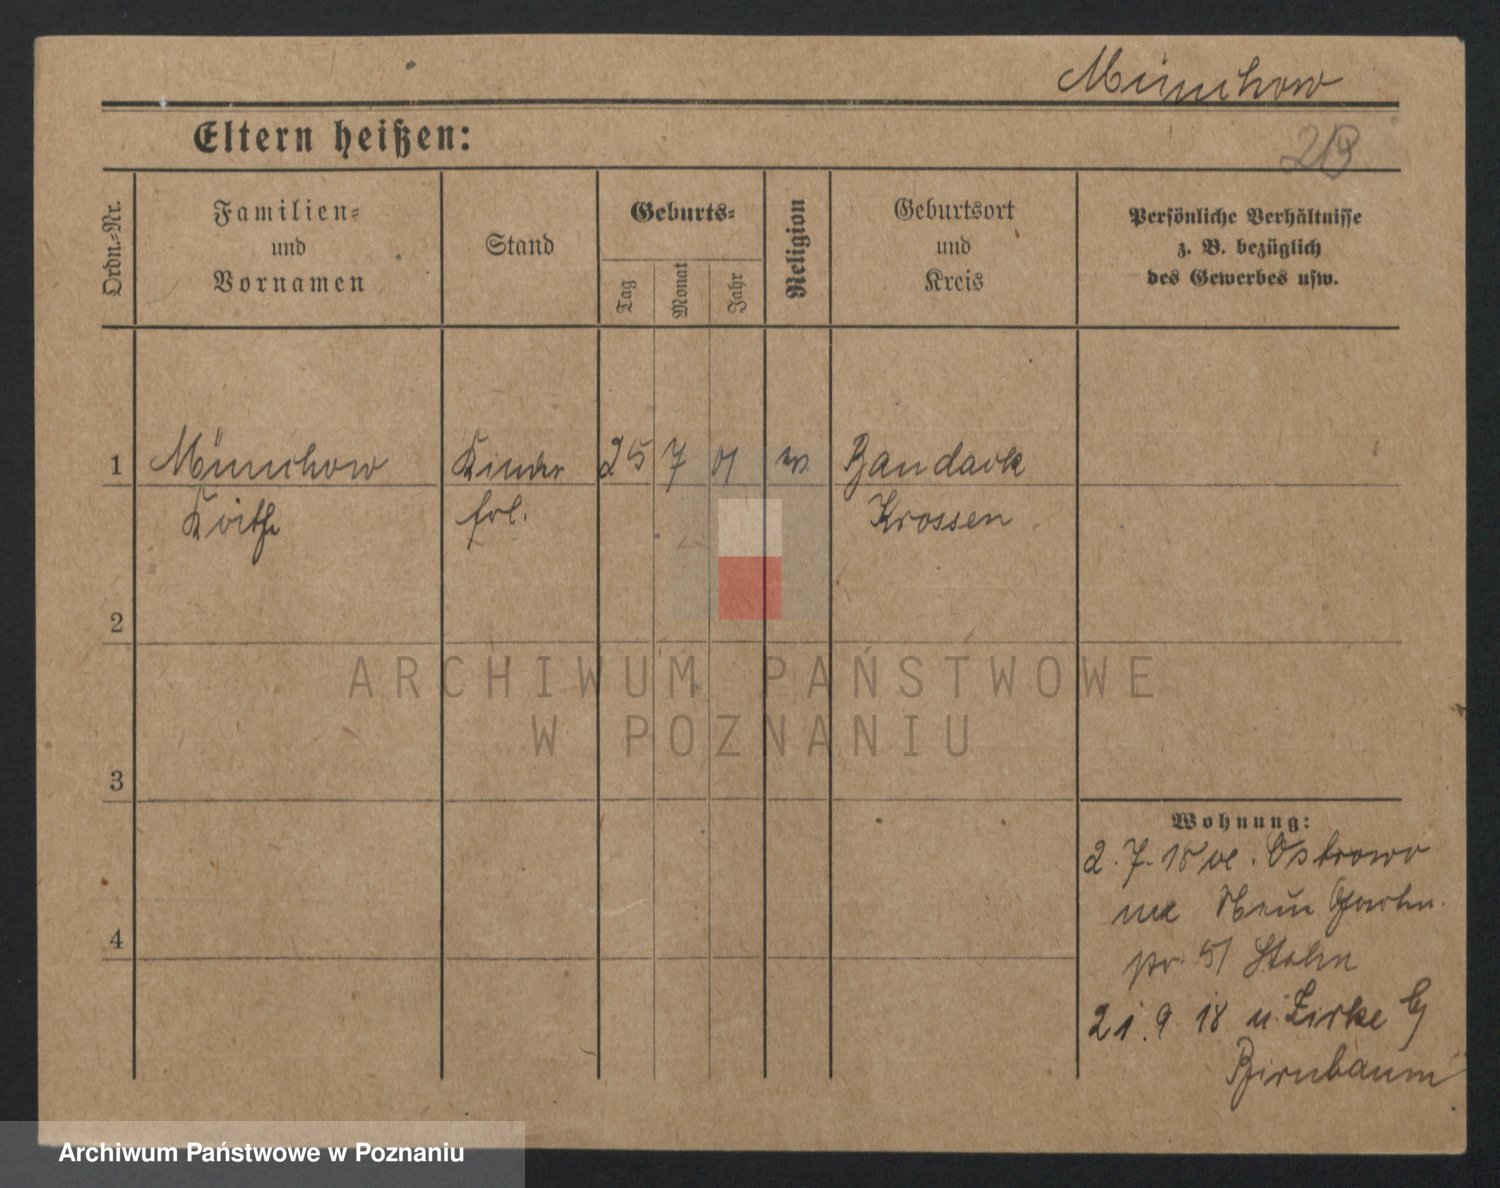 Münchow
Eltern heißen:
Ordn.-Nr.
Familien-
und
Vornamen
Stand
Geburts-
Tag
Monat
Jahr
Religion
Geburtsort
und
Kreis
Persönliche Verhältnisse
z. B. bezüglich
des Gewerbes usw.
1 Münchow Kinder 25 7 01 Bandack
Käthe frl. Krossen
2
3
4
Wohnung:
2.7.18 Ostrowo
pr. Stehn
21.9.18 n. Zirke
Birnbaum
ARCHIWUM PAŃSTWOWE
W POZNANIU
Archiwum Państwowe w Poznaniu